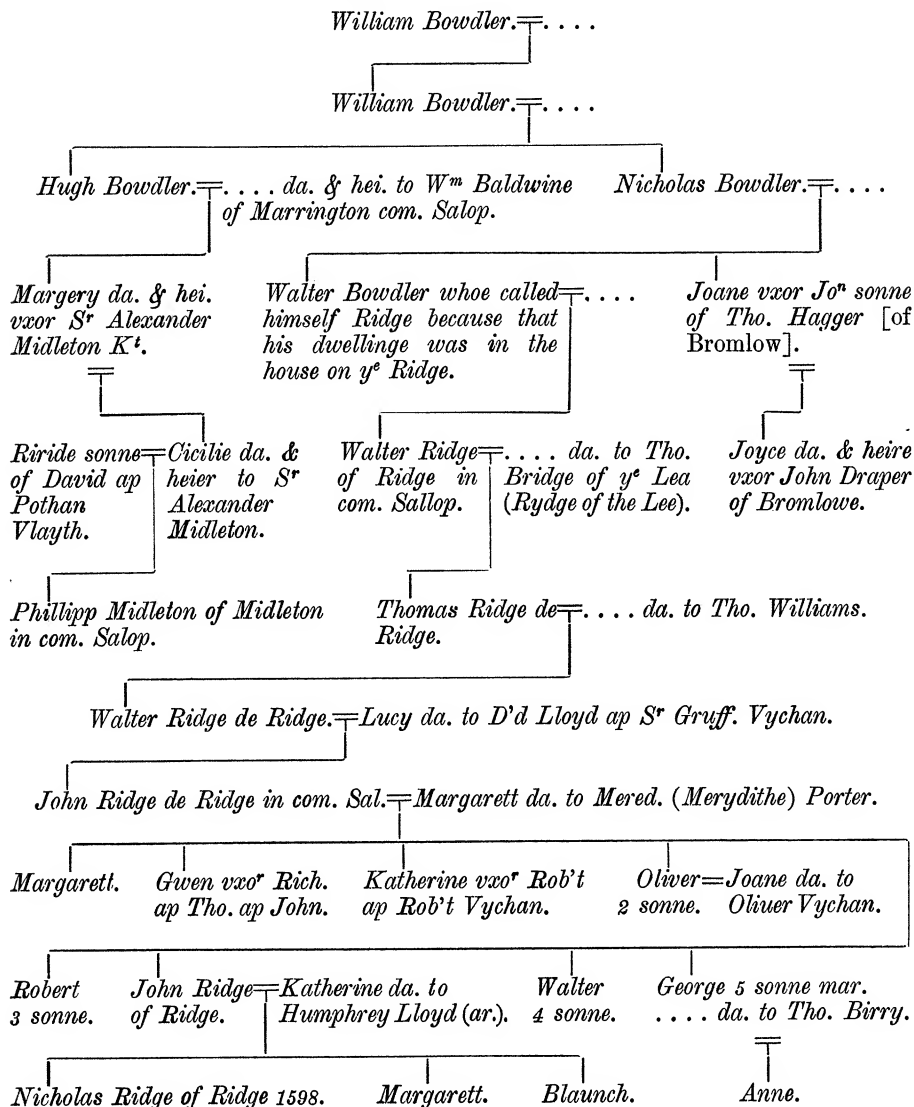 William Bowdler.=. . . .
William Bowdler.=. . . .
Hugh Bowdler.=. . . . da. & hei. to Wᵐ Baldwine
of Marrington com. Salop.
Nicholas Bowdler.=. . . .
Margery da. & hei.
vxor Sʳ Alexander
Midleton Kᵗ.
Walter Bowdler whoe called=. . . .
himself Ridge because that
his dwellinge was in the
house on yᵉ Ridge.
Joane vxor Joⁿ sonne
of Tho. Hagger [of
Bromlow].
Riride sonne=Cicilie da. &
of David ap heier to Sʳ
Pothan Alexander
Vlayth. Midleton.
Walter Ridge=. . . . da. to Tho.
of Ridge in Bridge of yᵉ Lea
com. Sallop. (Rydge of the Lee).
Joyce da. & heire
vxor John Draper
of Bromlowe.
Phillipp Midleton of Midleton
in com. Salop.
Thomas Ridge de=. . . . da. to Tho. Williams.
Ridge.
Walter Ridge de Ridge.=Lucy da. to D'd Lloyd ap Sʳ Gruff. Vychan.
John Ridge de Ridge in com. Sal.=Margarett da. to Mered. (Merydithe) Porter.
Margarett.
Gwen vxoʳ Rich.
ap Tho. ap John.
Katherine vxoʳ Rob't
ap Rob't Vychan.
Oliver=Joane da. to
2 sonne. Oliuer Vychan.
Robert
3 sonne.
John Ridge=Katherine da. to
of Ridge. Humphrey Lloyd (ar.).
Walter
4 sonne.
George 5 sonne mar.
. . . . da. to Tho. Birry.
Nicholas Ridge of Ridge 1598.
Margarett.
Blaunch.
Anne.